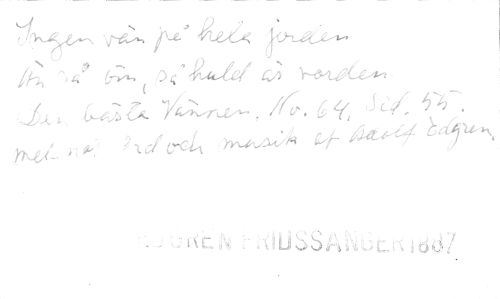 Ingen vän på hela jorden
Än så öm, så huld är vorden
Den bästa Vännen. No. 64, Sid. 55.
mel. no. Ord och musik af Adolf Ödgren
ÖDGREN FRIDSSÅNGER 1887